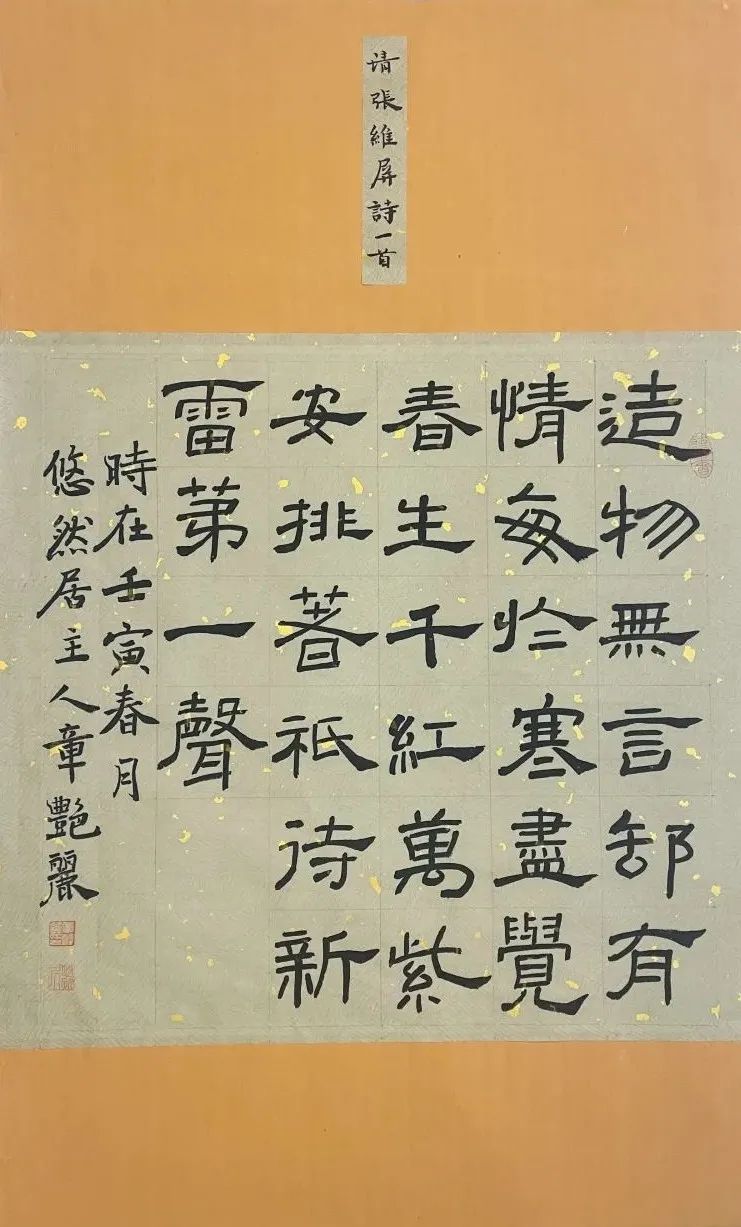 清張維屏詩一首
造物無言郤有
情每於寒盡覺
春生千紅萬紫
安排著祇待新
雷第一聲
時在壬寅春月
悠然居主人章艷麗